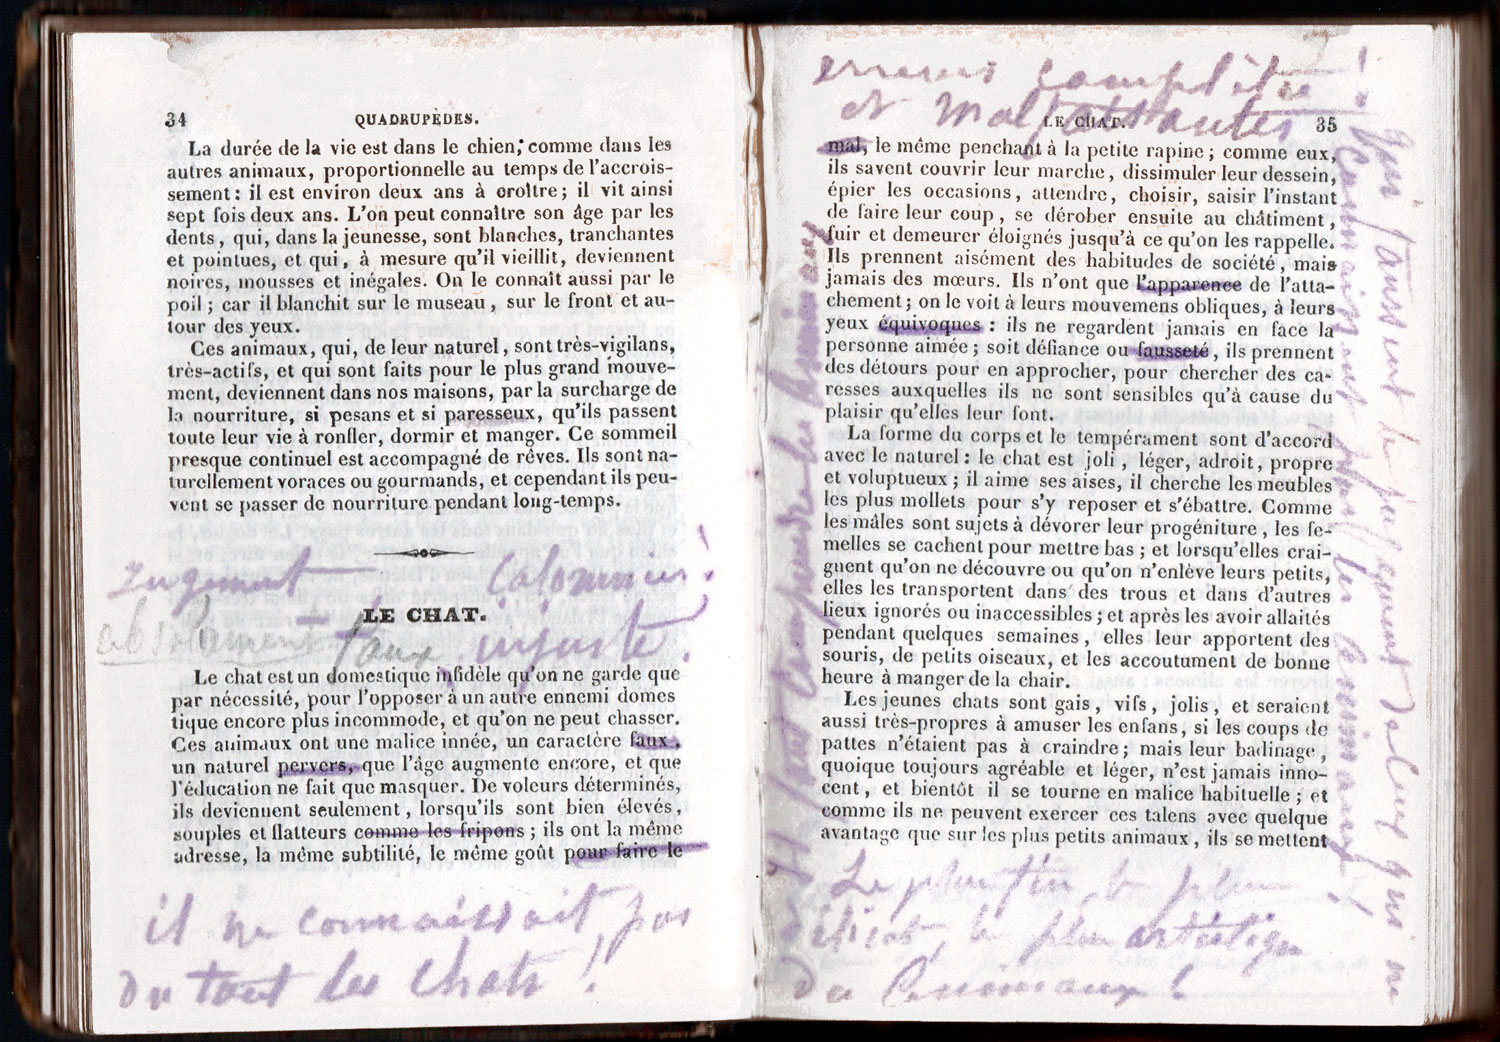 34
QUADRUPÈDES.
La durée de la vie est dans le chien, comme dans les
autres animaux, proportionnelle au temps de l'accrois-
sement : il est environ deux ans à croître ; il vit ainsi
sept fois deux ans. L'on peut connaître son âge par les
dents, qui, dans la jeunesse, sont blanches, tranchantes
et pointues, et qui, à mesure qu'il vieillit, deviennent
noires, mousses et inégales. On le connaît aussi par le
poil ; car il blanchit sur le museau, sur le front et au-
tour des yeux.
Ces animaux, qui, de leur naturel, sont très-vigilans,
très-actifs, et qui sont faits pour le plus grand mouve-
ment, deviennent dans nos maisons, par la surcharge de
la nourriture, si pesans et si paresseux, qu'ils passent
toute leur vie à ronfler, dormir et manger. Ce sommeil
presque continuel est accompagné de rêves. Ils sont na-
turellement voraces ou gourmands, et cependant ils peu-
vent se passer de nourriture pendant long-temps.
Jugement
absolument faux
injuste !
LE CHAT.
Le chat est un domestique infidèle qu'on ne garde que
par nécessité, pour l'opposer à un autre ennemi domes
tique encore plus incommode, et qu'on ne peut chasser.
Ces animaux ont une malice innée, un caractère faux,
un naturel pervers, que l'âge augmente encore, et que
l'éducation ne fait que masquer. De voleurs déterminés,
ils deviennent seulement, lorsqu'ils sont bien élevés,
souples et flatteurs comme les fripons ; ils ont la même
adresse, la même subtilité, le même goût pour faire le
il ne connaissait pas
du tout les chats !
erreurs complète !
et malfaisantes
LE CHAT.
35
mal, le même penchant à la petite rapine ; comme eux,
ils savent couvrir leur marche, dissimuler leur dessein,
épier les occasions, attendre, choisir, saisir l'instant
de faire leur coup, se dérober ensuite au châtiment,
fuir et demeurer éloignés jusqu'à ce qu'on les rappelle.
Ils prennent aisément des habitudes de société, mais
jamais des mœurs. Ils n'ont que l'apparence de l'atta-
chement ; on le voit à leurs mouvemens obliques, à leurs
yeux équivoques : ils ne regardent jamais en face la
personne aimée ; soit défiance ou fausseté, ils prennent
des détours pour en approcher, pour chercher des ca-
resses auxquelles ils ne sont sensibles qu'à cause du
plaisir qu'elles leur font.
La forme du corps et le tempérament sont d'accord
avec le naturel : le chat est joli, léger, adroit, propre
et voluptueux ; il aime ses aises, il cherche les meubles
les plus mollets pour s'y reposer et s'ébattre. Comme
les mâles sont sujets à dévorer leur progéniture, les fe-
melles se cachent pour mettre bas ; et lorsqu'elles crai-
gnent qu'on ne découvre ou qu'on n'enlève leurs petits,
elles les transportent dans des trous et dans d'autres
lieux ignorés ou inaccessibles ; et après les avoir allaités
pendant quelques semaines, elles leur apportent des
souris, de petits oiseaux, et les accoutument de bonne
heure à manger de la chair.
Les jeunes chats sont gais, vifs, jolis, et seraient
aussi très-propres à amuser les enfans, si les coups de
pattes n'étaient pas à craindre ; mais leur badinage,
quoique toujours agréable et léger, n'est jamais inno-
cent, et bientôt il se tourne en malice habituelle ; et
comme ils ne peuvent exercer ces talens avec quelque
avantage que sur les plus petits animaux, ils se mettent
Le plus fin, le plus
délicat, le plus artistique
des animaux !
Il faut comprendre les animaux
qui faussent le jugement de ceux qui ne
connaissent pas les animaux !